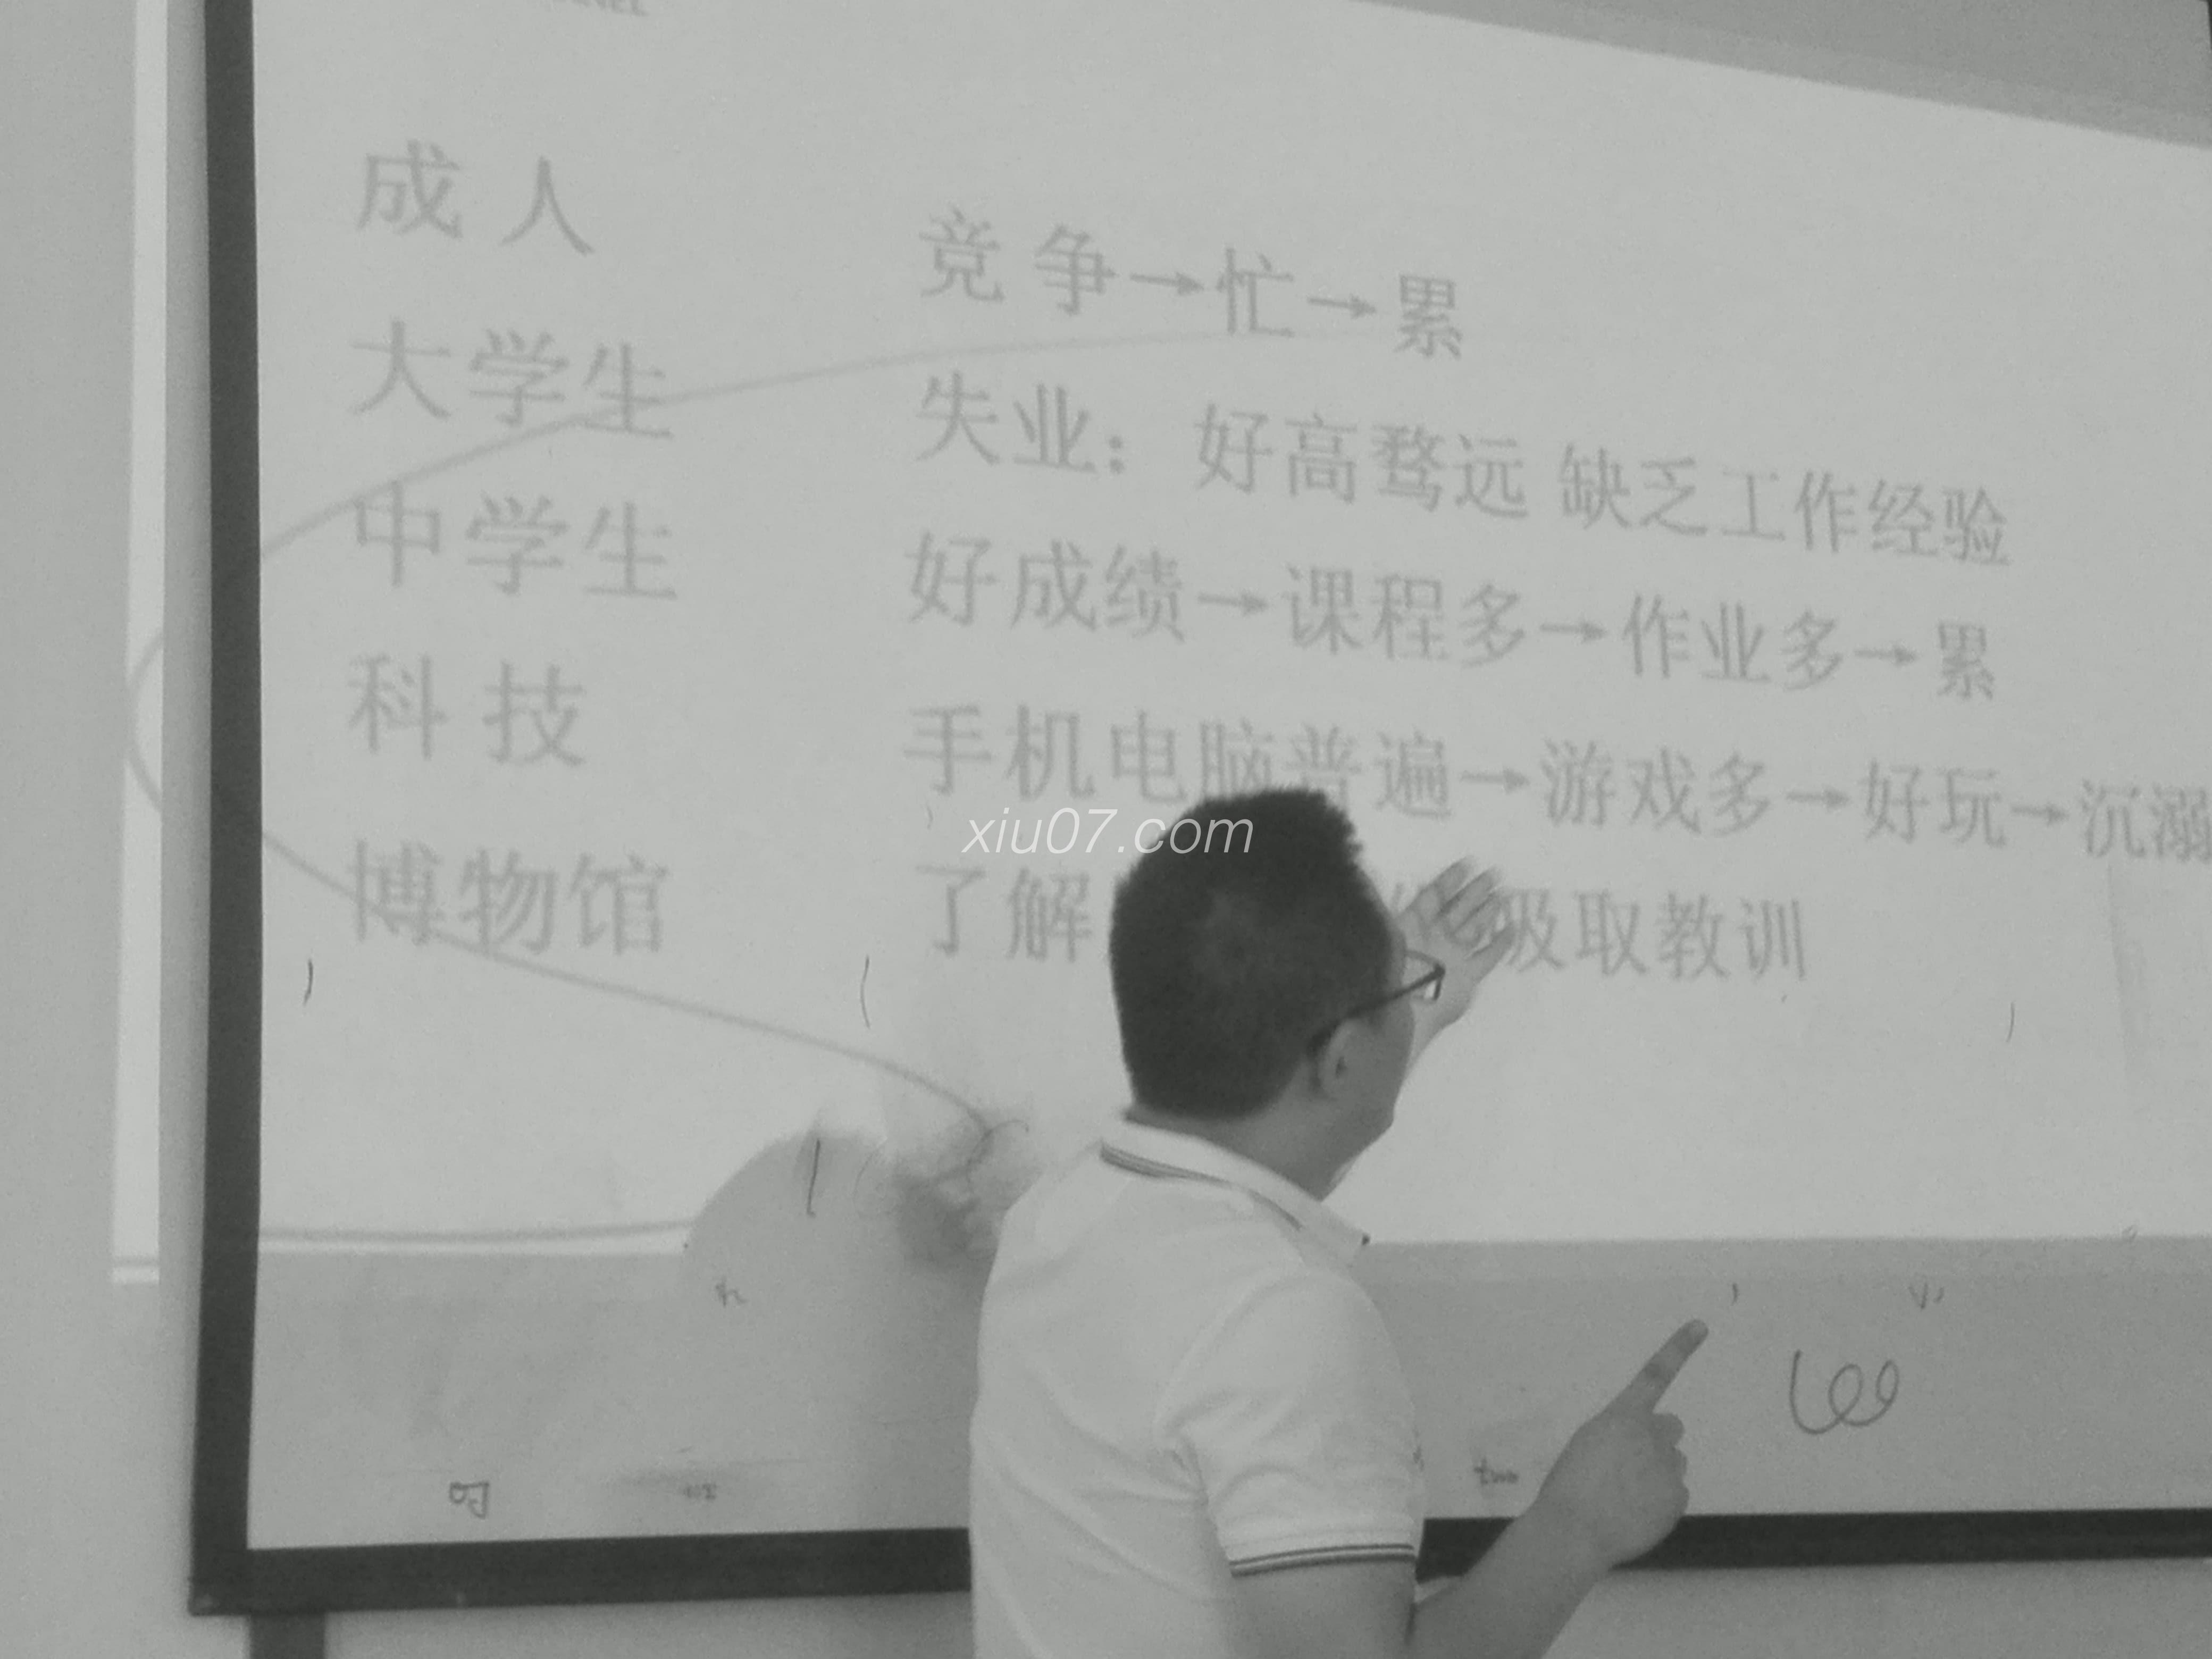 成人 竞争→忙→累
大学生 失业：好高骛远 缺乏工作经验
中学生 好成绩→课程多→作业多→累
科技 手机电脑普遍→游戏多→好玩→沉溺
博物馆 了解 吸取教训
xiu07.com